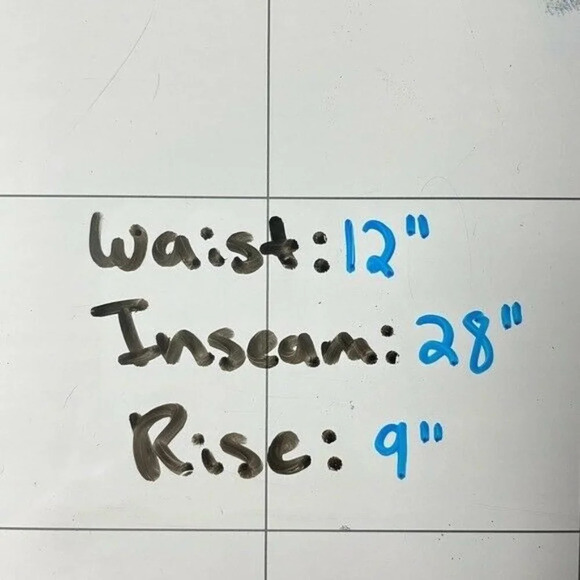 Waist: 12"
Inseam: 28"
Rise: 9"